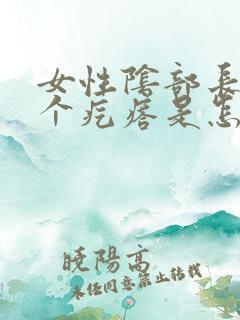 女性陰部長
个疙瘩是怎
曉陽高
未经同意禁止转载